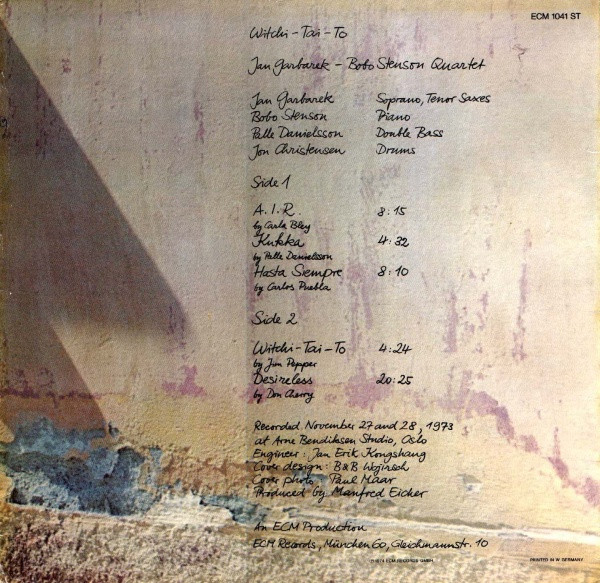 ECM 1041 ST
Witchi-Tai-To
Jan Garbarek - Bobo Stenson Quartet
Jan Garbarek Soprano, Tenor Saxes
Bobo Stenson Piano
Palle Danielsson Double Bass
Jon Christensen Drums
Side 1
A.I.R. 8:15
by Carla Bley
Kukka 4:32
by Palle Danielsson
Hasta Siempre 8:10
by Carlos Puebla
Side 2
Witchi-Tai-To 4:24
by Jim Pepper
Desireless 20:25
by Don Cherry
Recorded November 27 and 28, 1973
at Arne Bendiksen Studio, Oslo
Engineer: Jan Erik Kongshaug
Cover design: B&B Wojirsch
Cover photo: Paul Maar
Produced by Manfred Eicher
An ECM Production
ECM Records, München 60, Gleichmannstr. 10
℗ 1974 ECM RECORDS GMBH
PRINTED IN W. GERMANY